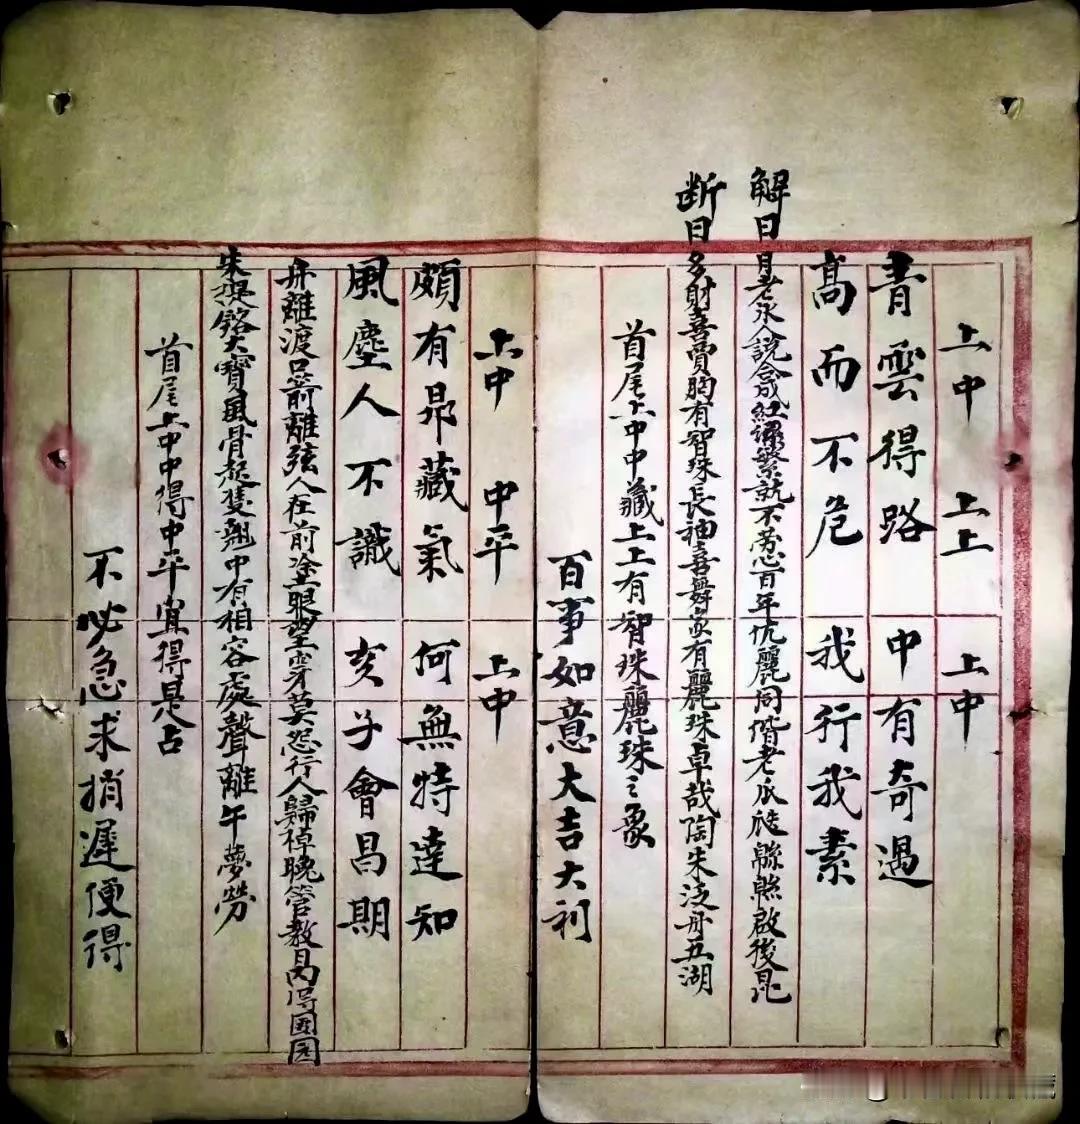 上中 上上 上中
青雲得路 中有奇遇
高而不危 我行我素
解曰月老永人說合成紅繩繫就不勞心百年伉麗同偕老瓜瓞緜緜啟後昆
断曰多財喜賈胸有智珠長袖喜舞家有麗珠卓哉陶朱泛舟五湖
首尾上中中藏上上有智珠麗珠之象
百事如意大吉大利
上中 中平 上中
頗有昂藏氣 何無特達知
風塵人不識 亥子會昌期
舟離渡口箭離弦人在前塗眼望穿莫怨行人歸棹晚管教昌得團圓
朱提鉻大寶風骨起隻翅中有相容處聲離午夢勞
首尾上中中得中平宜得是占
不必急求捎遲便得